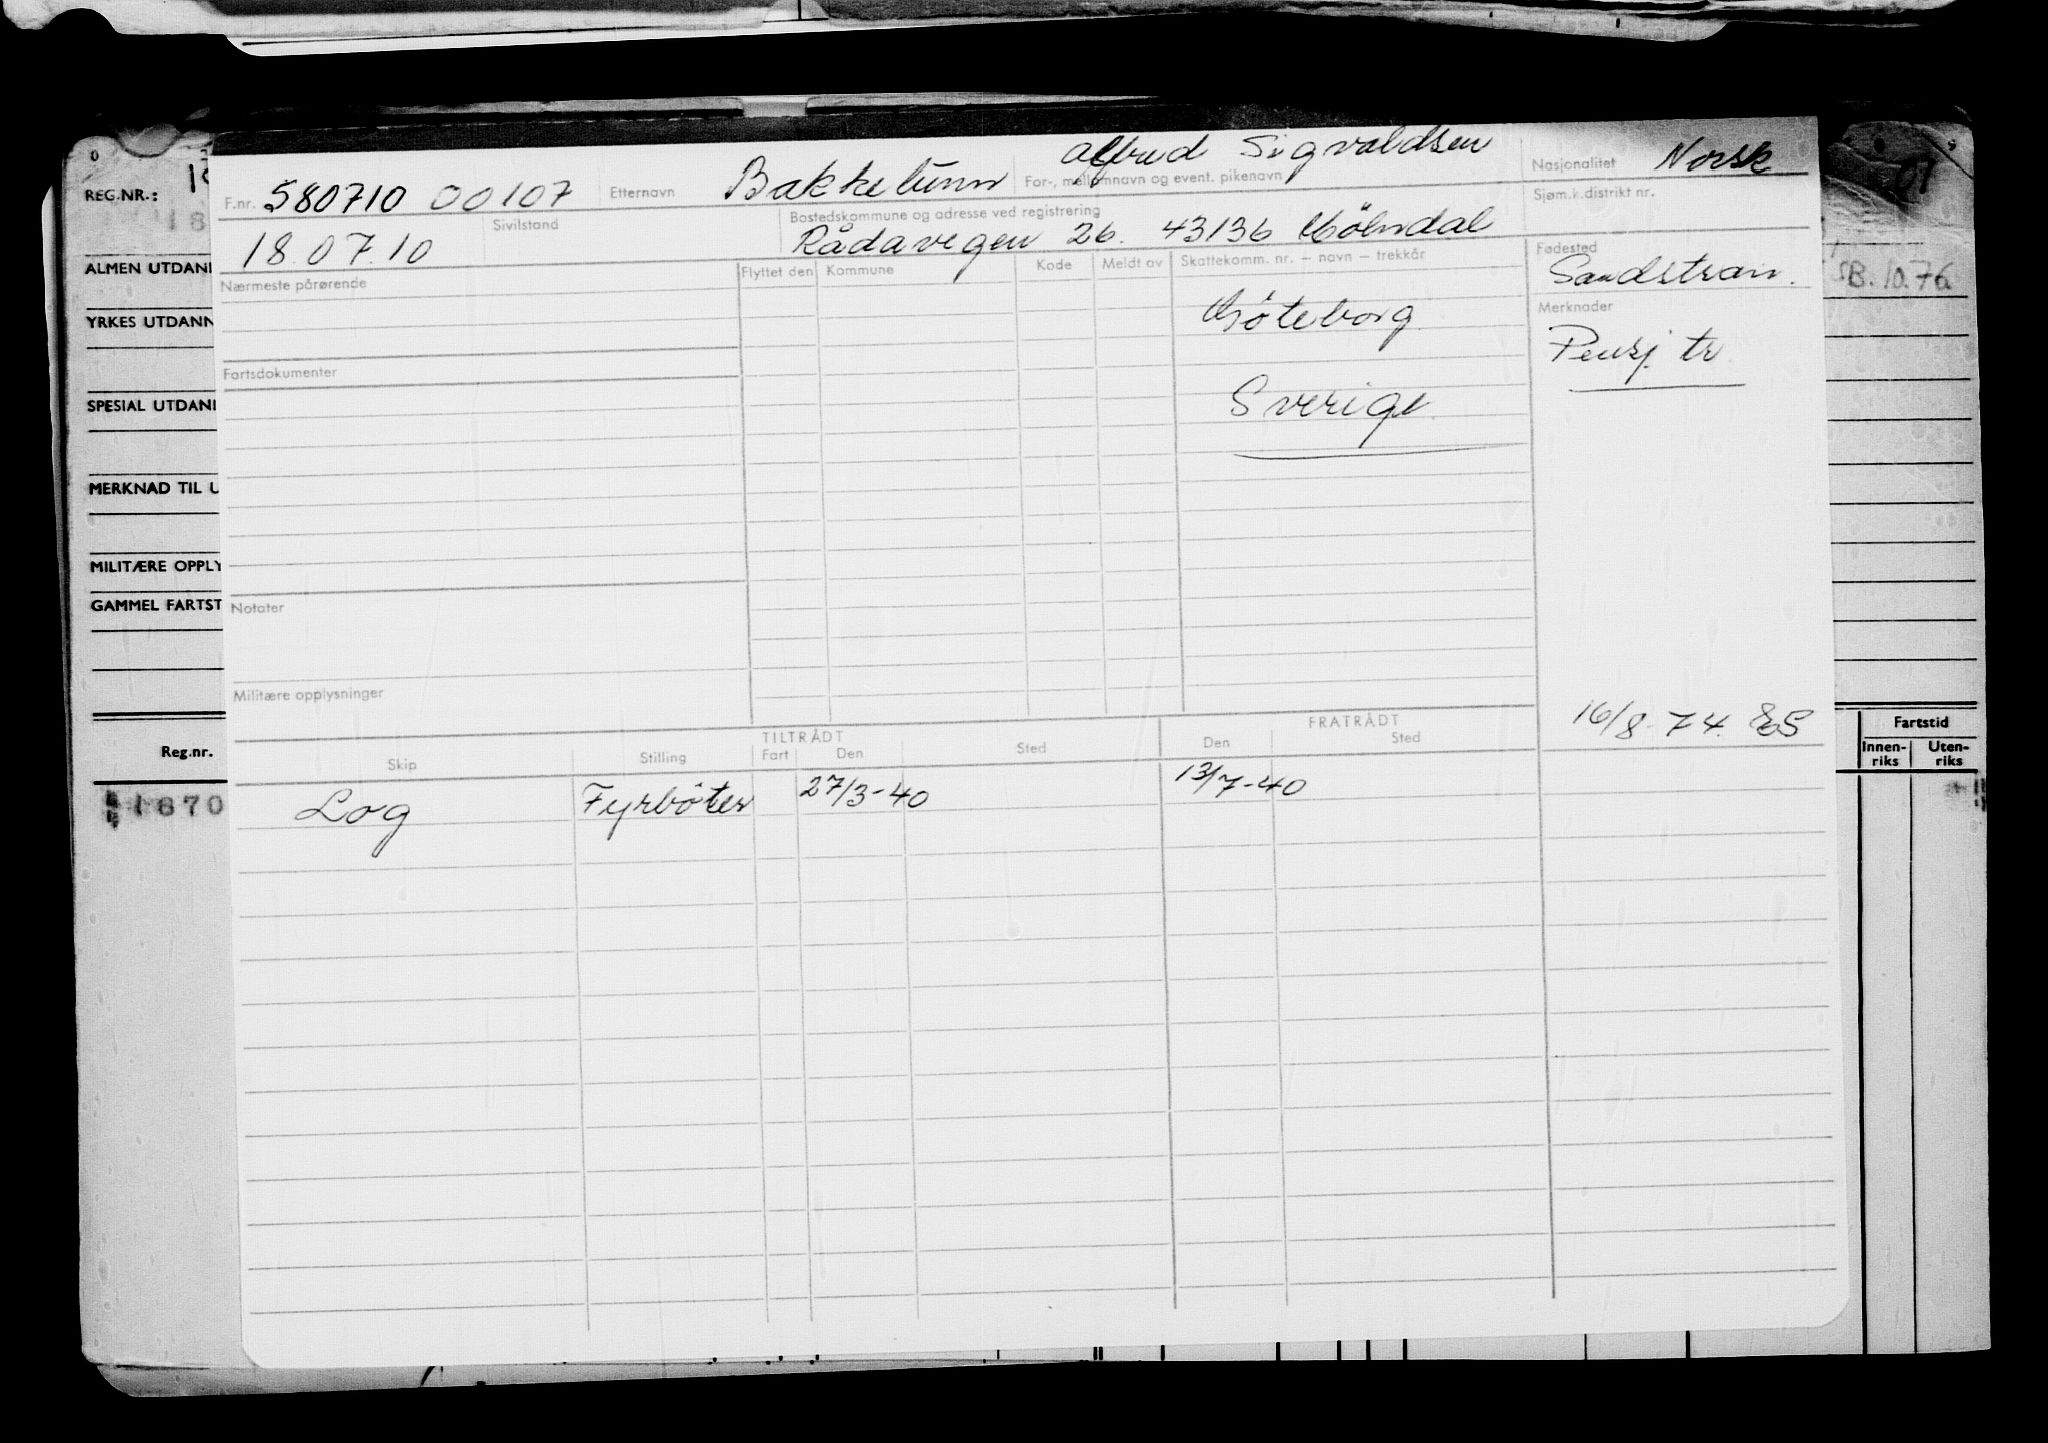 REG.NR.:
F.nr. 580710 00107 Etternavn Bakketunn For-, mellomnavn og event. pikenavn Alfred Sigvaldsen Nasjonalitet Norsk
18.07.10 Sivilstand Bostedskommune og adresse ved registrering Rådavegen 26. 43136 Mölndal Sjøm.k.distrikt nr.
Nærmeste pårørende Flyttet den Kommune Kode Meldt av Skattekomm. nr. – navn – trekkår Fødested Sandstran. SB.10.76
ALMEN UTDAN
Göteborg Merknader
YRKES UTDANN
Pensj. tr.
Fartsdokumenter
SPESIAL UTDAN
Sverige
MERKNAD TIL U
MILITÆRE OPPLY
GAMMEL FARTST
Notater
Militære opplysninger
16/8-74
TILTRÅDT FRATRÅDT
Reg.nr. Skip Stilling Fart Den Sted Den Sted Fartstid
Innen-riks Uten-riks
1870 Log Fyrböter 27/3-40 13/7-40